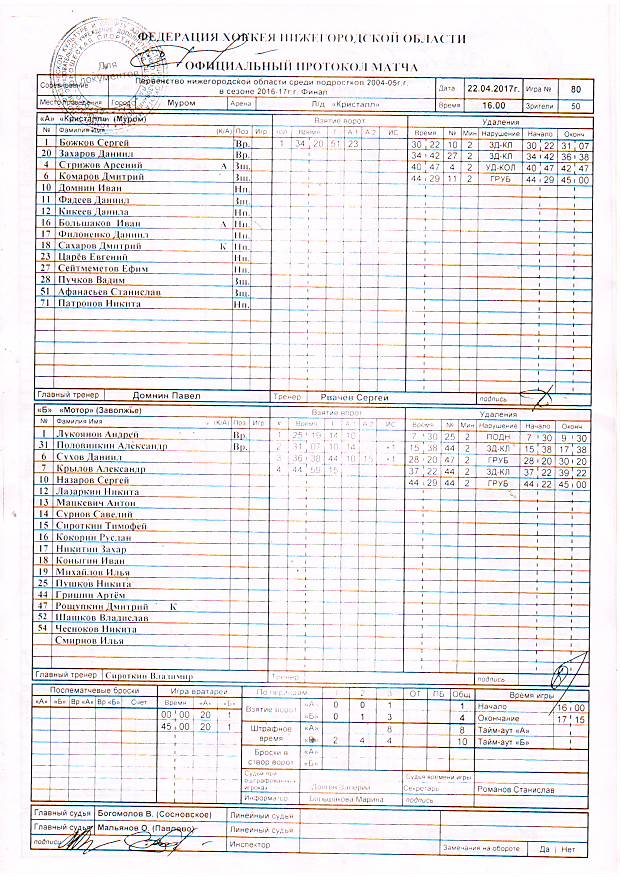 ФЕДЕРАЦИЯ ХОККЕЯ НИЖЕГОРОДСКОЙ ОБЛАСТИ
ОФИЦИАЛЬНЫЙ ПРОТОКОЛ МАТЧА
Для документов
Соревнование Первенство нижегородской области среди подростков 2004-05г.г. в сезоне 2016-17г.г. Финал Дата 22.04.2017г. Игра № 80
Место проведения Город Муром Арена Л/д «Кристалл» Время 16.00 Зрители 50
«А» «Кристалл» (Муром) Взятие ворот Удаления
№ Фамилия Имя (К/А) Поз Игр Время А 1 А 2 ИС Время № Мин Нарушение Начало Оконч
1 Божков Сергей Вр. 1 34 20 51 23 30 22 10 2 ЗД-КЛ 30 22 31 07
20 Захаров Даниил Вр. 34 42 27 2 ЗД-КЛ 34 42 36 38
4 Стрижов Арсений А Зщ. 40 47 4 2 УД-КОЛ 40 47 42 47
6 Комаров Дмитрий Зщ. 44 29 11 2 ГРУБ 44 29 45 00
10 Домнин Иван Нп.
11 Фадеев Даниил Зщ.
12 Кикеев Данила Нп.
16 Большаков Иван А Нп.
17 Филоненко Даниил Нп.
18 Сахаров Дмитрий К Нп.
23 Царёв Евгений Нп.
27 Сейтмеметов Ефим Нп.
28 Пучков Вадим Зщ.
51 Афанасьев Станислав Зщ.
71 Патронов Никита Нп.
Главный тренер Домнин Павел Тренер Рвачев Сергей подпись
«Б» «Мотор» (Заволжье) Взятие ворот Удаления
№ Фамилия Имя (К/А) Поз Игр Время А 1 А 2 ИС Время № Мин Нарушение Начало Оконч
1 Луконнов Андрей Вр. 1 25 19 14 10 7 30 25 2 ПОДН 7 30 9 30
31 Половинкин Александр Вр. 2 31 07 10 14 +1 15 38 44 2 ЗД-КЛ 15 38 17 38
6 Сухов Даниил 3 36 38 44 10 15 +1 28 20 47 2 ГРУБ 28 20 30 20
7 Крылов Александр 4 44 59 15 37 22 44 2 ЗД-КЛ 37 22 39 22
10 Назаров Сергей 44 29 44 2 ГРУБ 44 22 45 00
12 Лазаркин Никита
13 Мацкевич Антон
14 Сурнов Савелий
15 Сироткин Тимофей
16 Кокорин Руслан
17 Никитин Захар
18 Коныгин Иван
19 Михайлов Илья
25 Пушков Никита
44 Гришин Артём
47 Рощупкин Дмитрий К
52 Шашков Владислав
54 Чесноков Никита
Смирнов Илья
Главный тренер Сироткин Владимир Тренер подпись
Послематчевые броски Игра вратарей По периодам 1 2 3 ОТ ПБ Общ Время игры
«А» «Б» Вр «А» Вр «Б» Счет Время «А» «Б» Взятие ворот «А» 0 0 1 1 Начало 16 00
00 00 20 1 «Б» 0 1 3 4 Окончание 17 15
45 00 20 1 Штрафное время «А» 8 8 Тайм-аут «А»
«Б» 2 4 4 10 Тайм-аут «Б»
Броски в створ ворот «А»
«Б»
Судьи при оштрафованных игроках Валерий Судья времени игры
Секретарь Романов Станислав
Информатор Большакова Марина подпись
Главный судья Богомолов В. (Сосновское) Линейный судья
Главный судья Мальянов О. (Павлово) Линейный судья
подписи Инспектор Замечания на обороте Да Нет